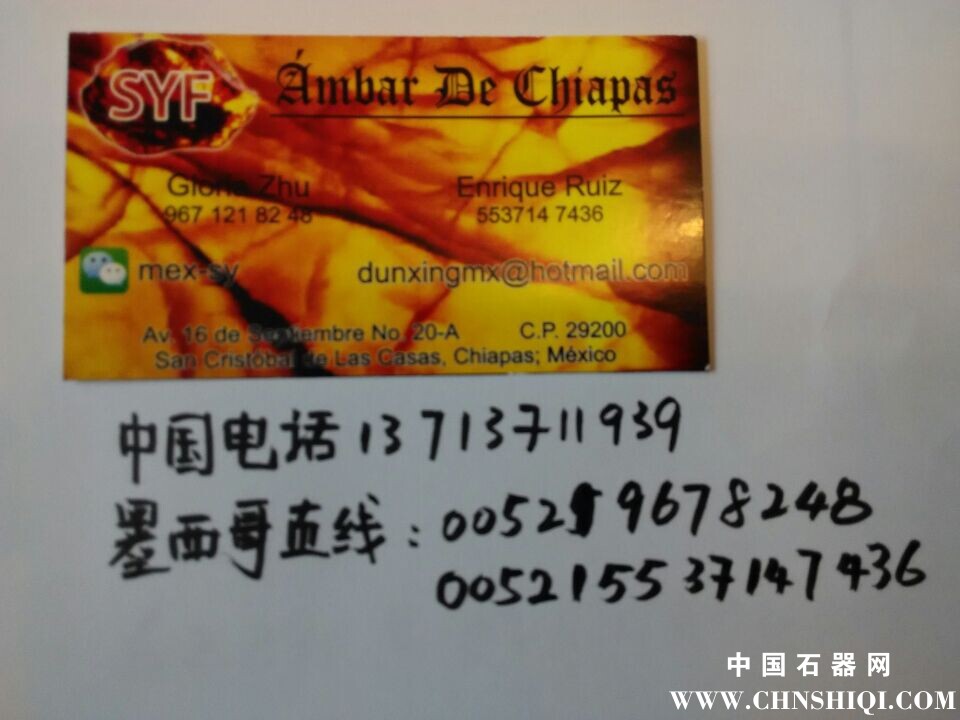 SYF
Ámbar De Chiapas
Gloria Zhu
967 121 82 48
Enrique Ruiz
553714 7436
mex-sy
dunxingmx@hotmail.com
Av. 16 de Septiembre No. 20-A C.P. 29200
San Cristóbal de Las Casas, Chiapas; México
中国电话 13713711939
墨西哥直线: 005219678248
005215537147436
中国石器网
WWW.CHNSHIQI.COM